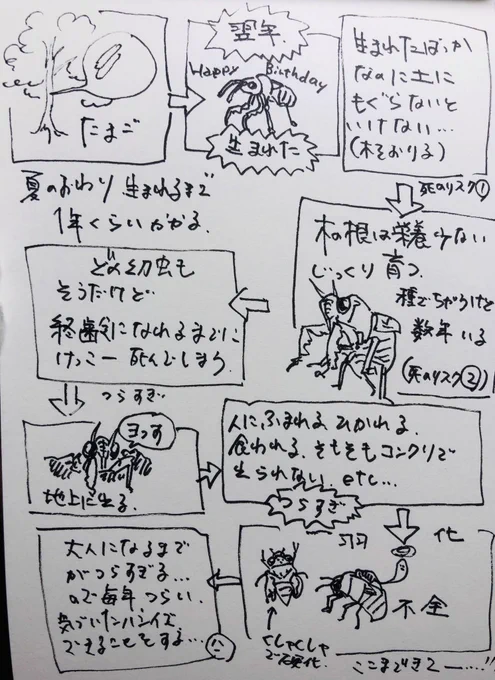 たまご
翌年
Happy Birthday
生まれた
生まれたばっか
なのに土に
もぐらないと
いけない…
(木をおりる)
夏のおわり 生まれるまで
1年くらいかかる。
死のリスク①
木の根は栄養少ない
じっくり育つ
種でちがうけど
数年いる
(死のリスク②)
どの幼虫も
そうだけど
終齢になれるまでに
けっこー死んでしまう。
つらすぎ
ヨっす
地上に出る。
人にふまれる ひかれる
食われる そもそもコンクリで
出られない etc…
つらすぎ
羽化
不全
くしゃくしゃ
で硬化
ここまできて―…
大人になるまで
がつらすぎる…
ので毎年つらい。
気づいたハンイで
できることをする…